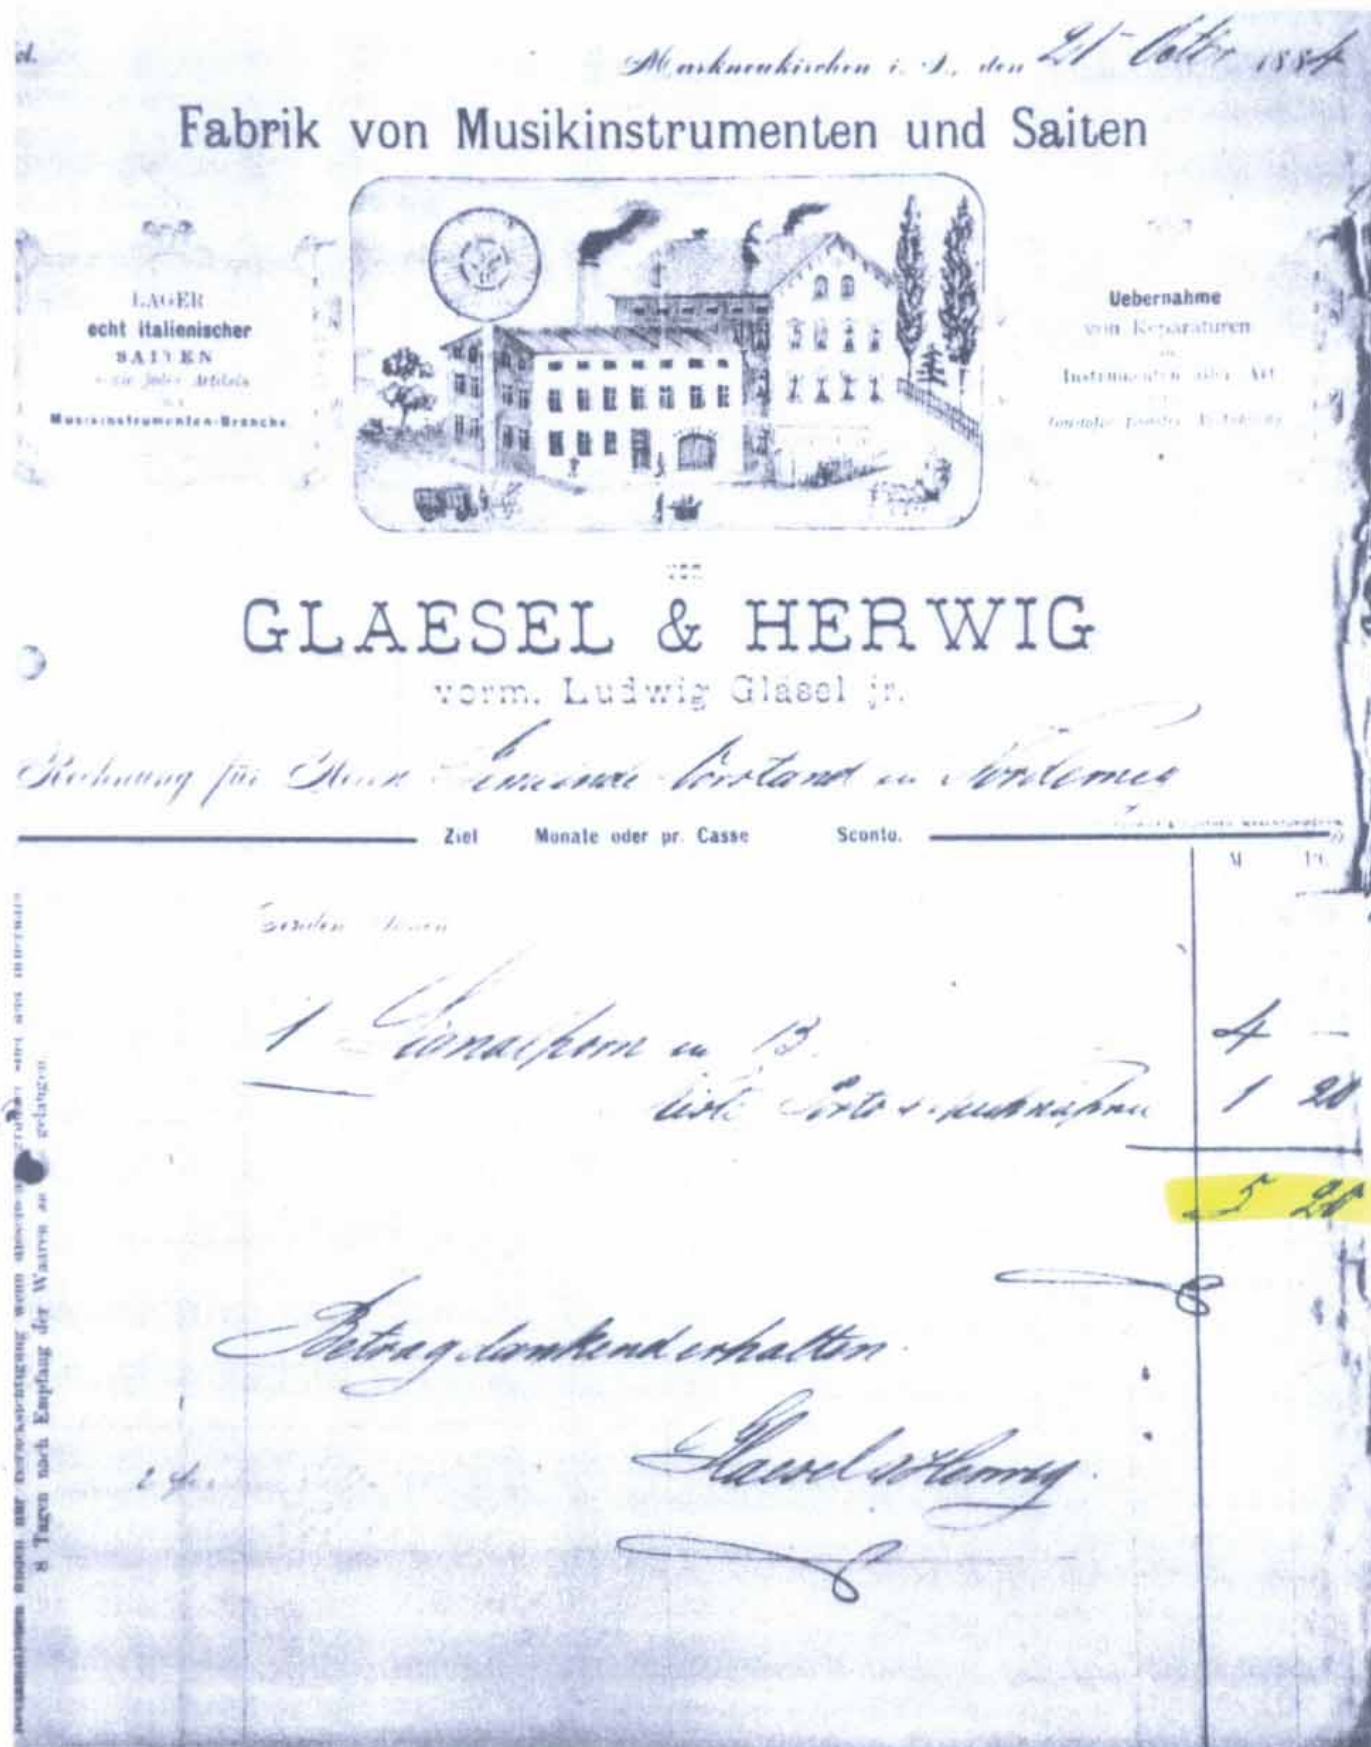 Markneukirchen i. S., den 21 Octbr 1884
Fabrik von Musikinstrumenten und Saiten
LAGER
echt italienischer
SAITEN
sowie jeder Artikels
der
Musikinstrumenten-Branche
Uebernahme
von Reparaturen
Instrumenten aller Art
von
GLAESEL & HERWIG
vorm. Ludwig Gläsel jr.
Rechnung für Herrn Gemeinde Vorstand in Norderney
Ziel Monate oder pr. Casse Sconto.
M Pf.
senden Ihnen
1 Signalhorn in B. 4 —
Porto & Nachnahme 1 20
5 20
Betrag dankend erhalten.
Glaesel & Herwig.
8 Tagen nach Empfang der Waaren an gelangen.